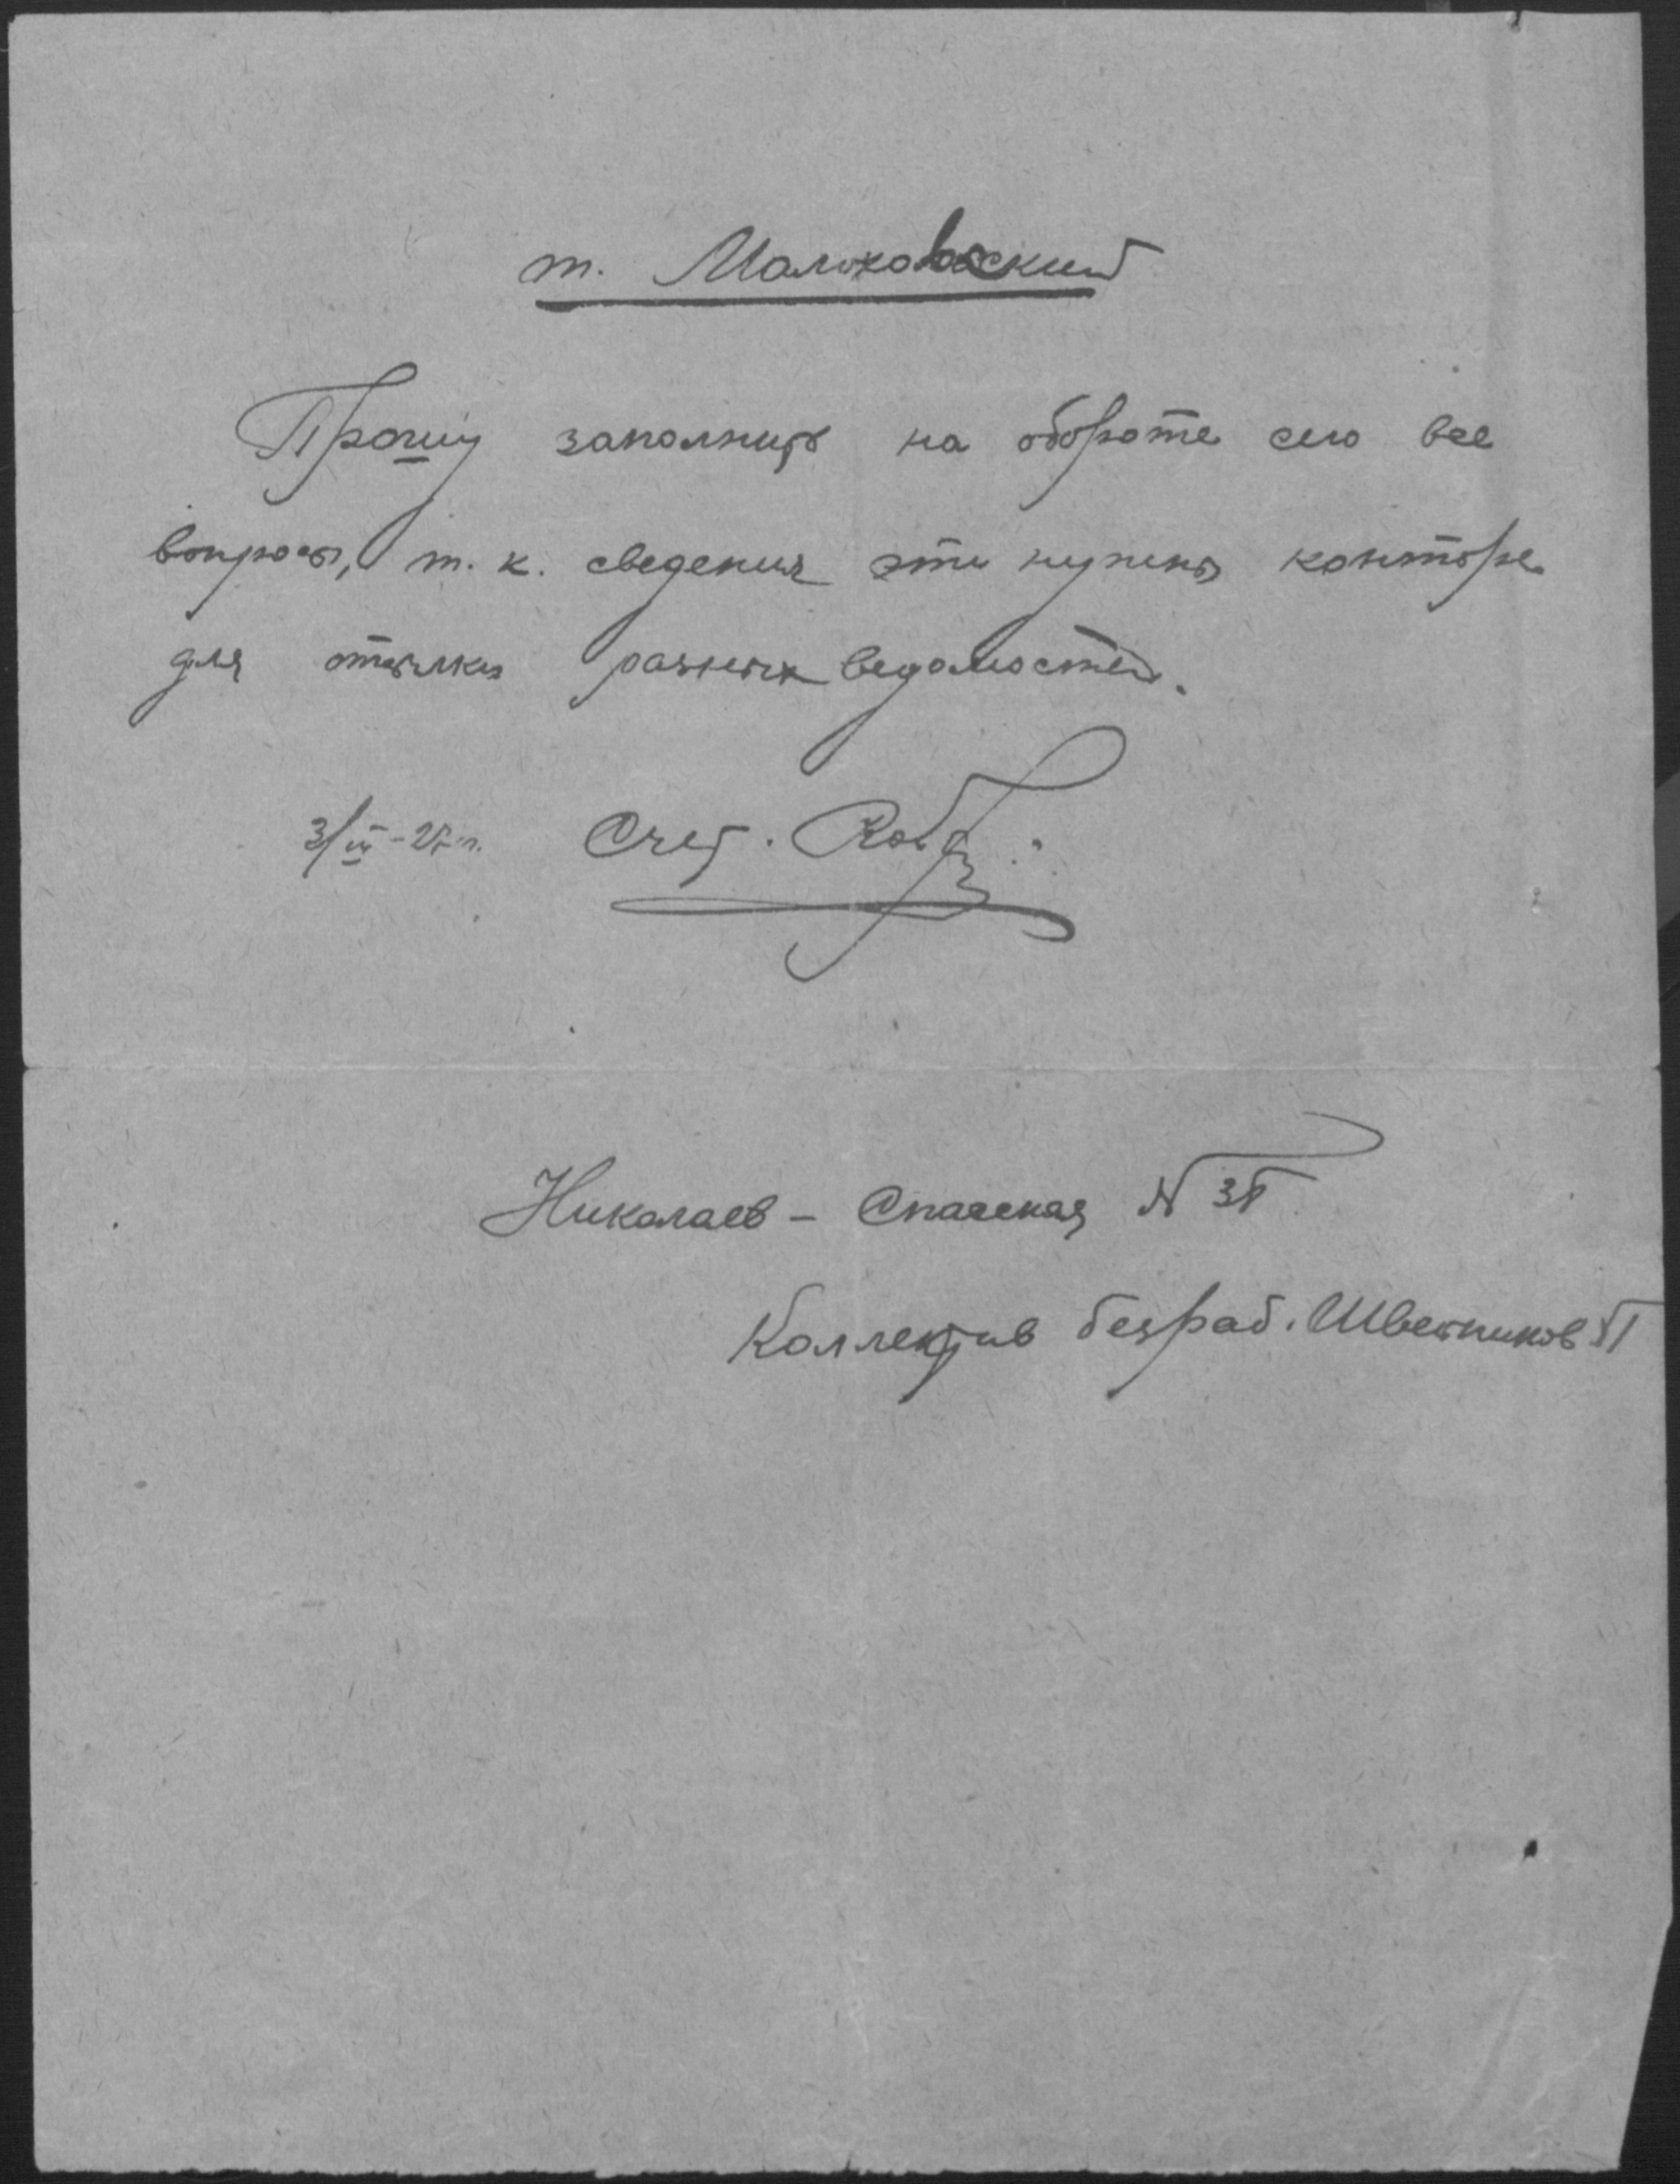 т. Малиховский
Прошу заполнить на обороте сего все
вопросы, т. к. сведения эти нужны конторе
для отсылки разных ведомостей.
Счет.
Николаев – Спасская №
Коллектив безраб. Швейников